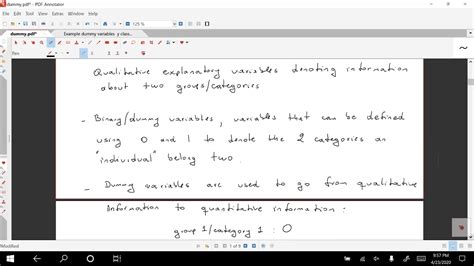 dummy.pdf* - PDF Annotator
File Edit Tool View Extras Window Help
125 %
dummy.pdf* Example dummy variables y class...
Pen
Qualitative explanatory variables denoting information
about two groups/categories
- Binary/dummy variables, variables that can be defined
using 0 and 1 to denote the 2 categories an
"individual" belong two.
- Dummy variables are used to go from qualitative
Information to quantitative information:
group 1/category 1 : 0
Modified
1 of 9
9:57 PM
4/23/2020